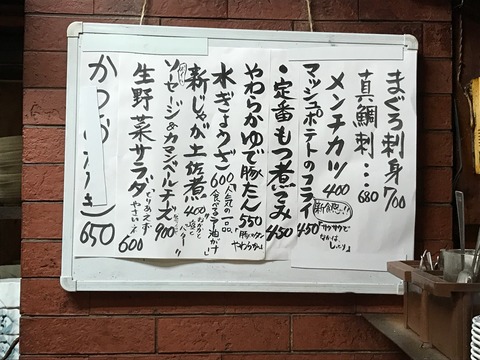 まぐろ刺身 700
真鯛刺… 680
メンチカツ 400
マッシュポテトのフライ 450
新食感…!!
サクサクで
なかは、
しっとり
・定番もつ煮こみ 450
やわらかゆで豚たん 550
やわらかい
水ぎょうざ 600
人気の一品、
食べるラー油がけ
新じゃが土佐煮 400
ソーセージ&カマンベールチーズ 900
生野菜サラダ 600
とりあえず
やさい
650